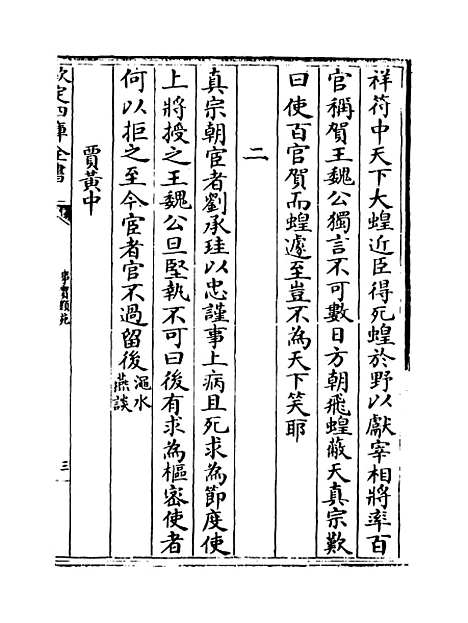 祥符中天下大蝗近臣得死蝗於野以獻宰相將率百
官稱賀王魏公獨言不可數日方朝飛蝗蔽天真宗歎
曰使百官賀而蝗遽至豈不為天下笑耶
二
真宗朝宦者劉承珪以忠謹事上病且死求為節度使
上將授之王魏公旦堅執不可曰後有求為樞密使者
何以拒之至今宦者官不過留後澠水燕談
賈黃中
欽定四庫全書
事實類苑
三